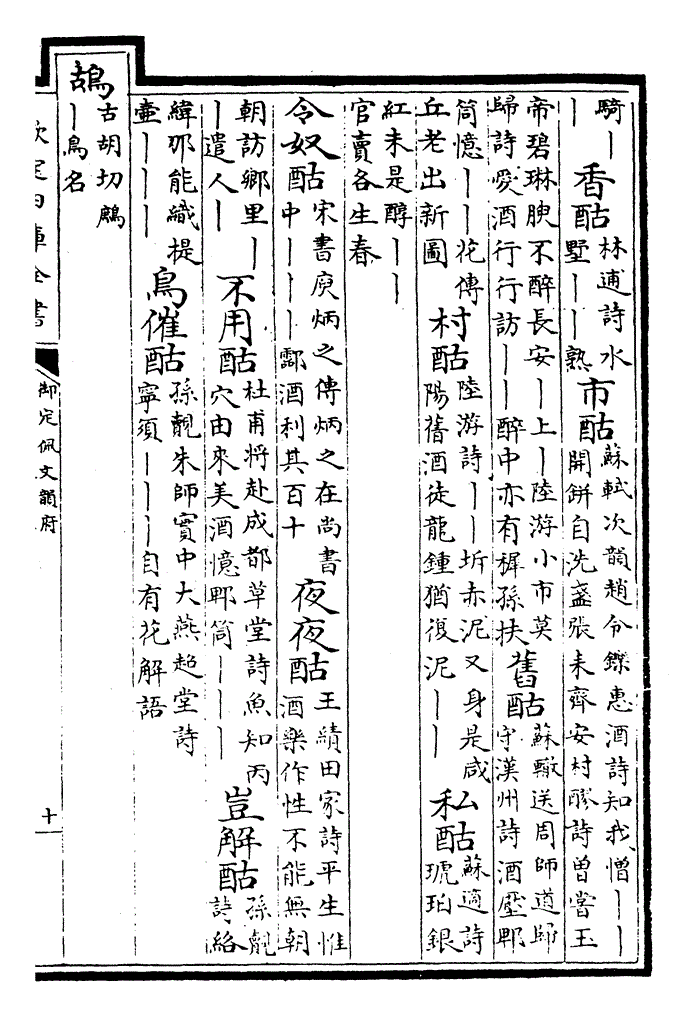 騎｜｜香酤林逋詩水墅｜｜熟市酤蘇軾次韻趙令鑠惠酒詩知我憎｜｜開缾自洗盞張耒齊安村醪詩曾嘗玉
帝碧琳腴不醉長安｜上｜陸游小市莫歸詩愛酒行行訪｜｜醉中亦有穉孫扶舊酤蘇轍送周師道歸守漢州詩酒壓郫
筒憶｜｜花傳丘老出新圖村酤陸游詩｜｜坼赤泥又身是咸陽舊酒徒龍鍾猶復泥｜｜私酤蘇適詩琥珀銀
紅未是醇｜｜官賣各生春
令奴酤宋書庾炳之傳炳之在尚書中｜｜｜酃酒利其百十夜夜酤王績田家詩平生惟酒樂作性不能無朝
朝訪鄉里｜｜遣人｜不用酤杜甫將赴成都草堂詩魚知丙穴由來美酒憶郫筒｜｜｜豈解酤孫覿詩絡
緯那能織提壷｜｜｜鳥催酤孫覿朱師實中大燕超堂詩寧須｜｜｜自有花解語
鴣古胡切鷓｜鳥名
欽定四庫全書
御定佩文韻府
十